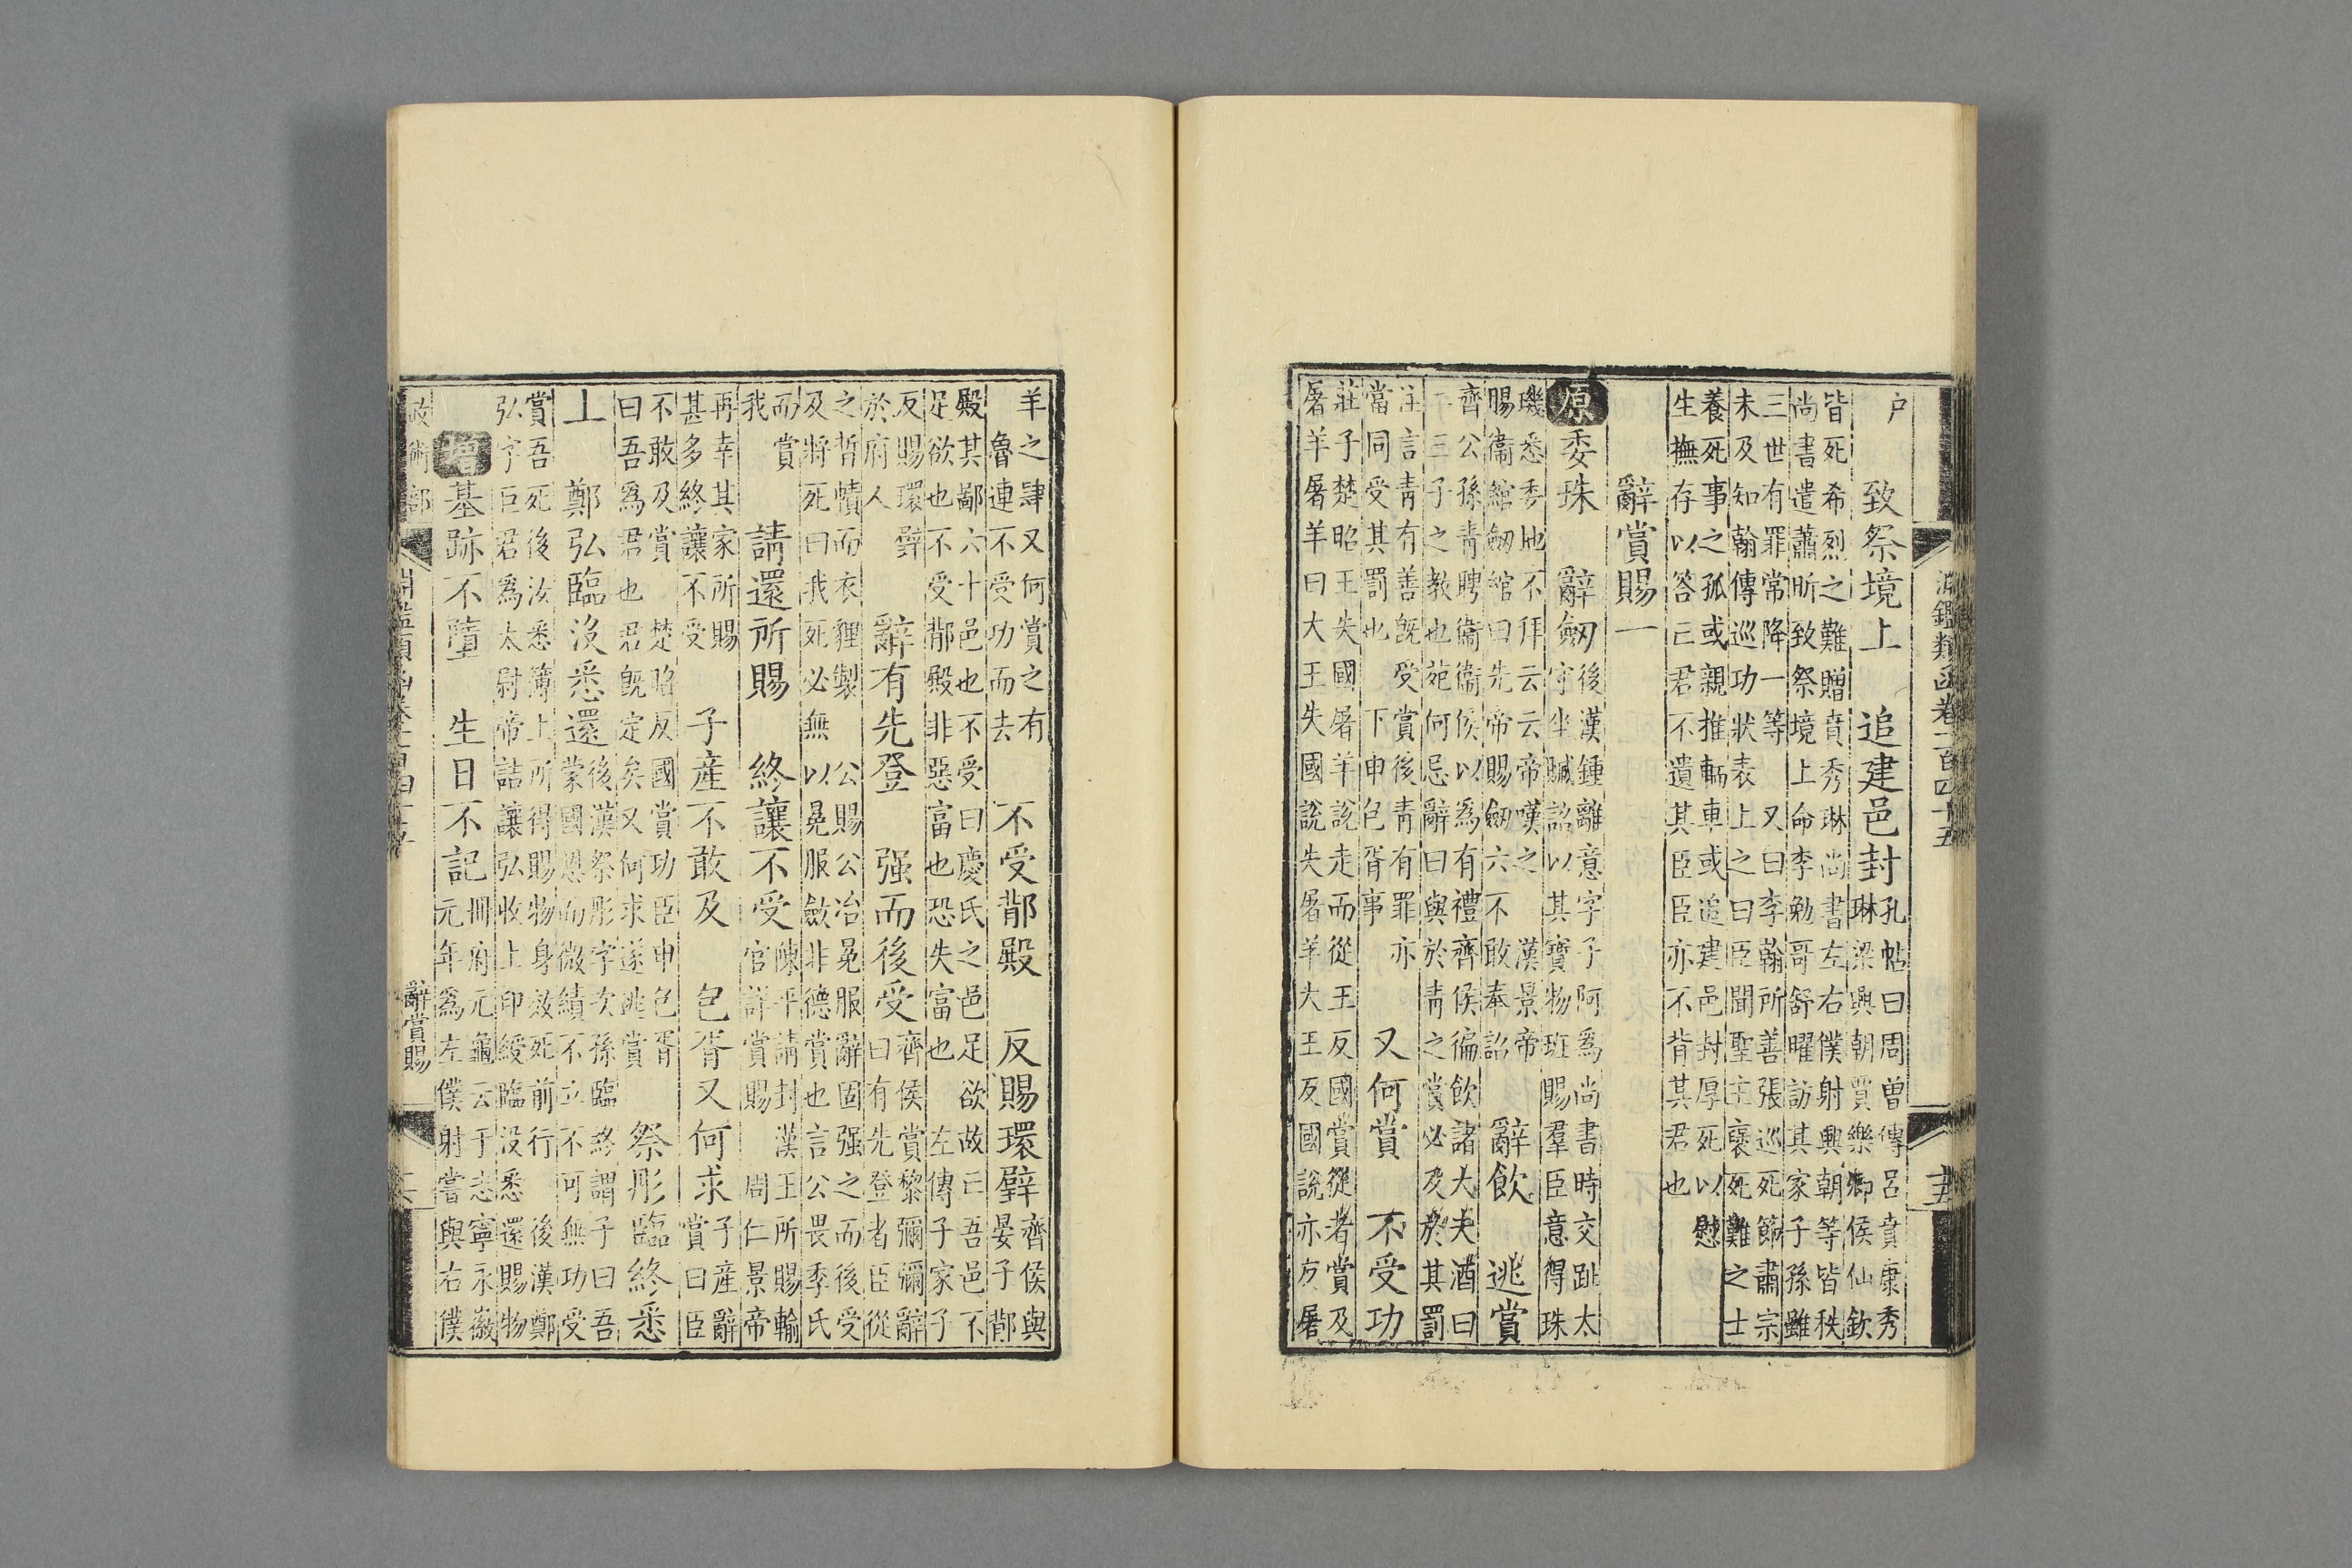 淵鑑類函卷二百四十五
十五
户
致祭境上
追建邑封
孔帖曰周曾傳呂賁康秀
琳梁興朝賈樂卿侯仙欽
皆死希烈之難贈賁秀琳尚書左右僕射興朝等皆秩
尚書遣蕭昕致祭境上命李勉哥舒曜訪其家子孫雖
三世有罪常降一等 又曰李翰所善張巡死節肅宗
未及知翰傳巡功狀表上之曰臣聞聖主襃死難之士
養死事之孤或親推轜車或追建邑封厚死以慰
生撫存以答己君不遺其臣臣亦不背其君也
辭賞賜一
原
委珠
辭劒
後漢鍾離意字子阿為尚書時交趾太
守坐贓詔以其寶物班賜羣臣意得珠
璣悉委地不拜云云帝嘆之 漢景帝
賜衞綰劒綰曰先帝賜劒六不敢奉詔
辭飲
逃賞
齊公孫青聘衞衞侯以為有禮齊侯徧飲諸大夫酒曰
二三子之教也苑何忌辭曰與於青之賞必及於其罰
注言青有善旣受賞後青有罪亦
當同受其罰也 下申包胥事
又何賞
不受功
莊子楚昭王失國屠羊說走而從王王反國賞從者賞及
屠羊屠羊曰大王失國說失屠羊大王反國說亦反屠
羊之肆又何賞之有
魯連不受功而去
不受鄁殿
反賜環璧
齊侯與
晏子鄁
殿其鄙六十邑也不受曰慶氏之邑足欲故亡吾邑不
足欲也不受鄁殿非惡富也恐失富也 左傳子家子
反賜環璧
於府人
辭有先登
强而後受
齊侯賞黎彌彌辭
曰有先登者臣從
之晳幘而衣貍製 公賜公冶冕服辭固强之而後受
及將死曰我死必無以冕服斂非德賞也言公畏季氏
而賞
我
請還所賜
終讓不受
陳平請封 漢王所賜輸
官詳賞賜 周仁景帝
再幸其家所賜
甚多終讓不受
子產不敢及
包胥又何求
子產辭
賞曰臣
不敢及賞 楚昭反國賞功臣申包胥
曰吾為君也君旣定矣又何求遂逃賞
祭肜臨終悉
上
鄭弘臨没悉還
後漢祭肜字次孫臨終謂子曰吾
蒙國恩而微績不立不可無功受
賞吾死後汝悉簿上所得賜物身效死前行 後漢鄭
弘字巨君為太尉帝詰讓弘收上印綬臨没悉還賜物
增
基跡不墮
生日不記
冊府元龜云于志寧永徽
元年為左僕射嘗與右僕
政術部
辭賞賜